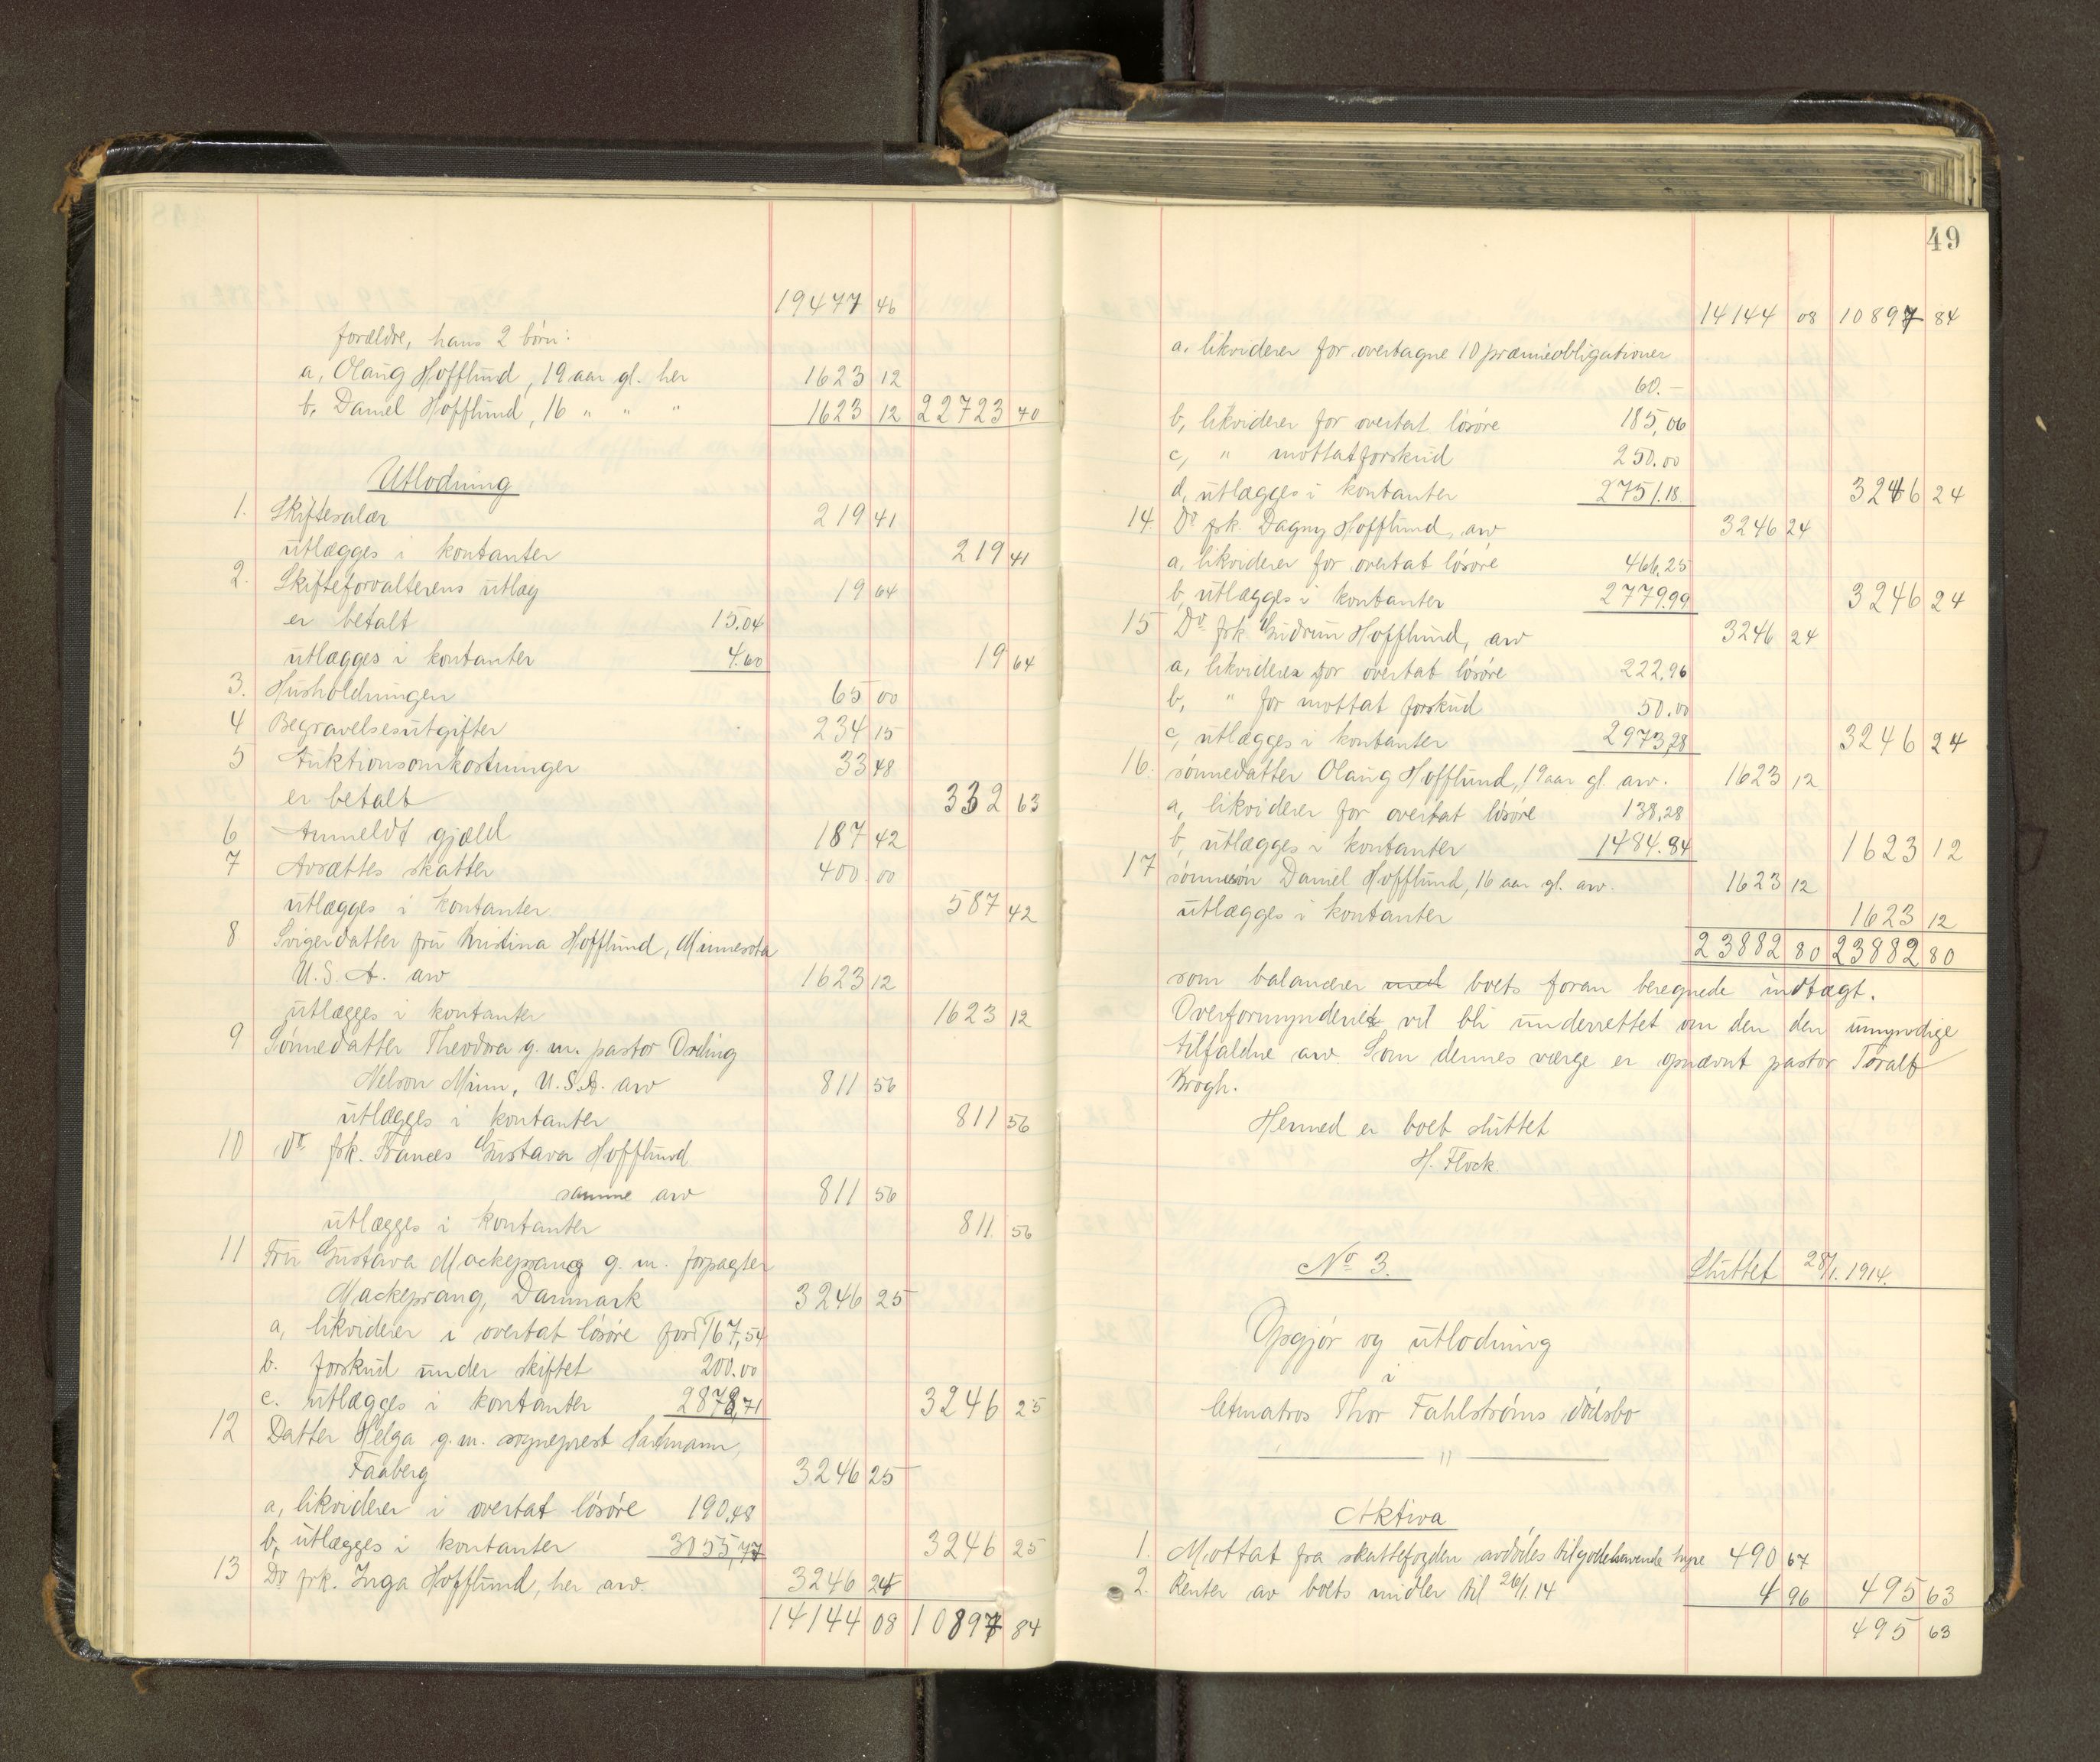 19477 46
forældre, hans 2 børn:
a, Olaug Hofflund, 19 aar gl. her 1623 12
b, Daniel Hofflund, 16 " " " 1623 12 22723 40
Utlodning
1. Skiftesalær 219 41
utlægges i kontanter 219 41
2. Skifteforvalterens utlæg 19 64
er betalt 15.04
utlægges i kontanter 4.60 19 64
3. Husholdningen 65 00
4 Begravelsesutgifter 234 15
5 Auktionsomkostninger 33 48
er betalt 332 63
6 Anmeldt gjæld 187 42
7 Avsættes skatter 400.00
utlægges i kontanter 587 42
8 Svigerdatter fru Kristina Hofflund, Minnesota
U.S.A. arv 1623 12
utlægges i kontanter 1623 12
9 Sønnedatter Theodora g.m. pastor
Nelson Minn, U.S.A. arv 811 56
utlægges i kontanter 811 56
10 Do frk. Frances Gustava Hofflund
samme arv 811 56
utlægges i kontanter 811 56
11 Fru Gustava Mackeprang g. m. forpagter
Mackeprang, Danmark 3246 25
a, likviderer i overtat løsøre for 167,54
b. forskud under skiftet 200.00
c. utlægges i kontanter 2878,71 3246 25
12 Datter Helga g.m. sogneprest Hartmann,
Faaberg 3246 25
a, likviderer i overtat løsøre 190,48
b, utlægges i kontanter 3055,77 3246 25
13 Do frk. Inga Hofflund, her arv. 3246 24
14144 08 10897 84
49
14144 08 10897 84
a, likviderer for overtagne 10 præmieobligationer
60.-
b, likviderer for overtat løsøre 185,06
c, " mottat forskud 250.00
d, utlægges i kontanter 2751.18. 3246 24
14 Do frk. Dagny Hofflund, arv 3246 24
a, likviderer for overtat løsøre 466,25
b, utlægges i kontanter 2779.99 3246 24
15 Do frk Gudrun Hofflund, arv 3246 24
a, likviderer for overtat løsøre 222,96
b, " for mottat forskud 50.00
c, utlægges i kontanter 2973,28 3246 24
16. sønnedatter Olaug Hofflund, 19 aar gl. arv. 1623 12
a, likviderer for overtat løsøre 138,28
b, utlægges i kontanter 1484.84 1623 12
17 sønnesøn Daniel Hofflund, 16 aar gl. arv. 1623 12
utlægges i kontanter 1623 12
23882 80 23882 80
som balancerer med boets foran beregnede indtægt.
Overformynderiet vil bli underrettet om den den umyndige
tilfaldne arv. Som dennes værge er opnævnt pastor Toralf
Krogh.
Hermed er boet sluttet
H. Flock
No 3. Sluttet 28/1. 1914.
Opgjør og utlodning
i
letmatros Thor Fahlstrøms dødsbo
"
Aktiva
1. Mottat fra skattefogden avdødes tilgodehavende hyre 490 67
2. Renter av boets midler til 26/1 14 4 96 495 63
495 63